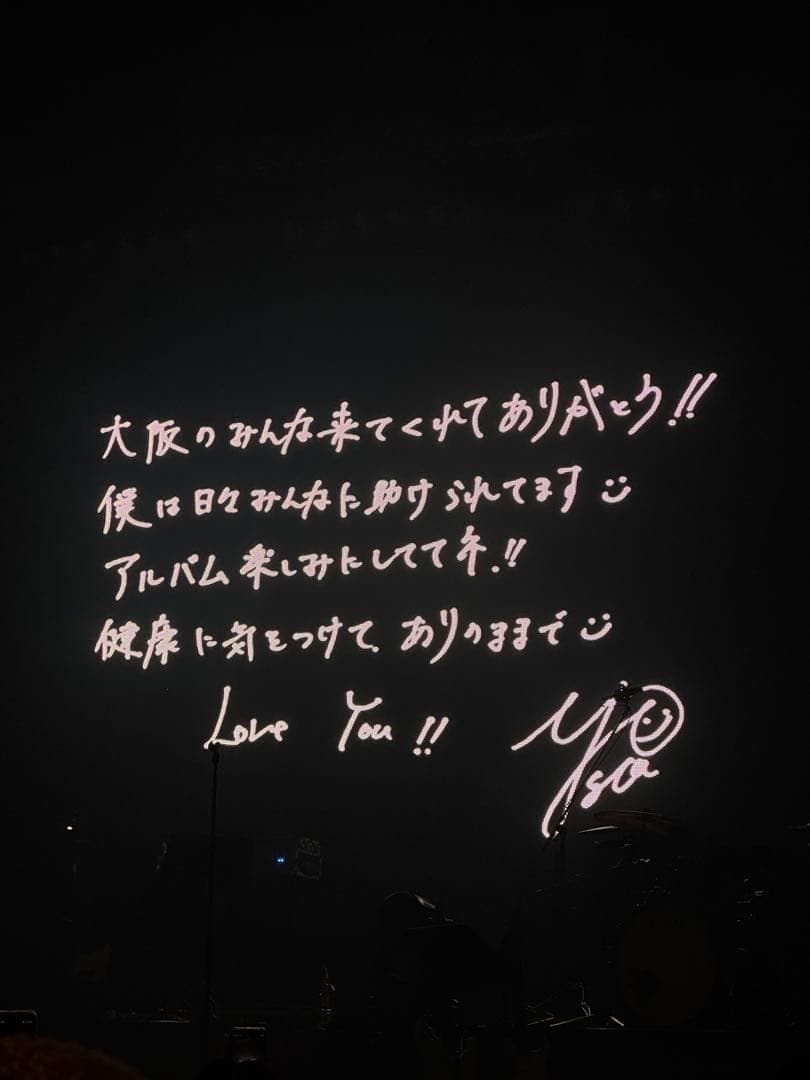 大阪のみんな来てくれてありがとう!!
僕は日々みんなに助けられてます
アルバム楽しみにしててネ!!
健康に気をつけて、ありのままで
Love You!!